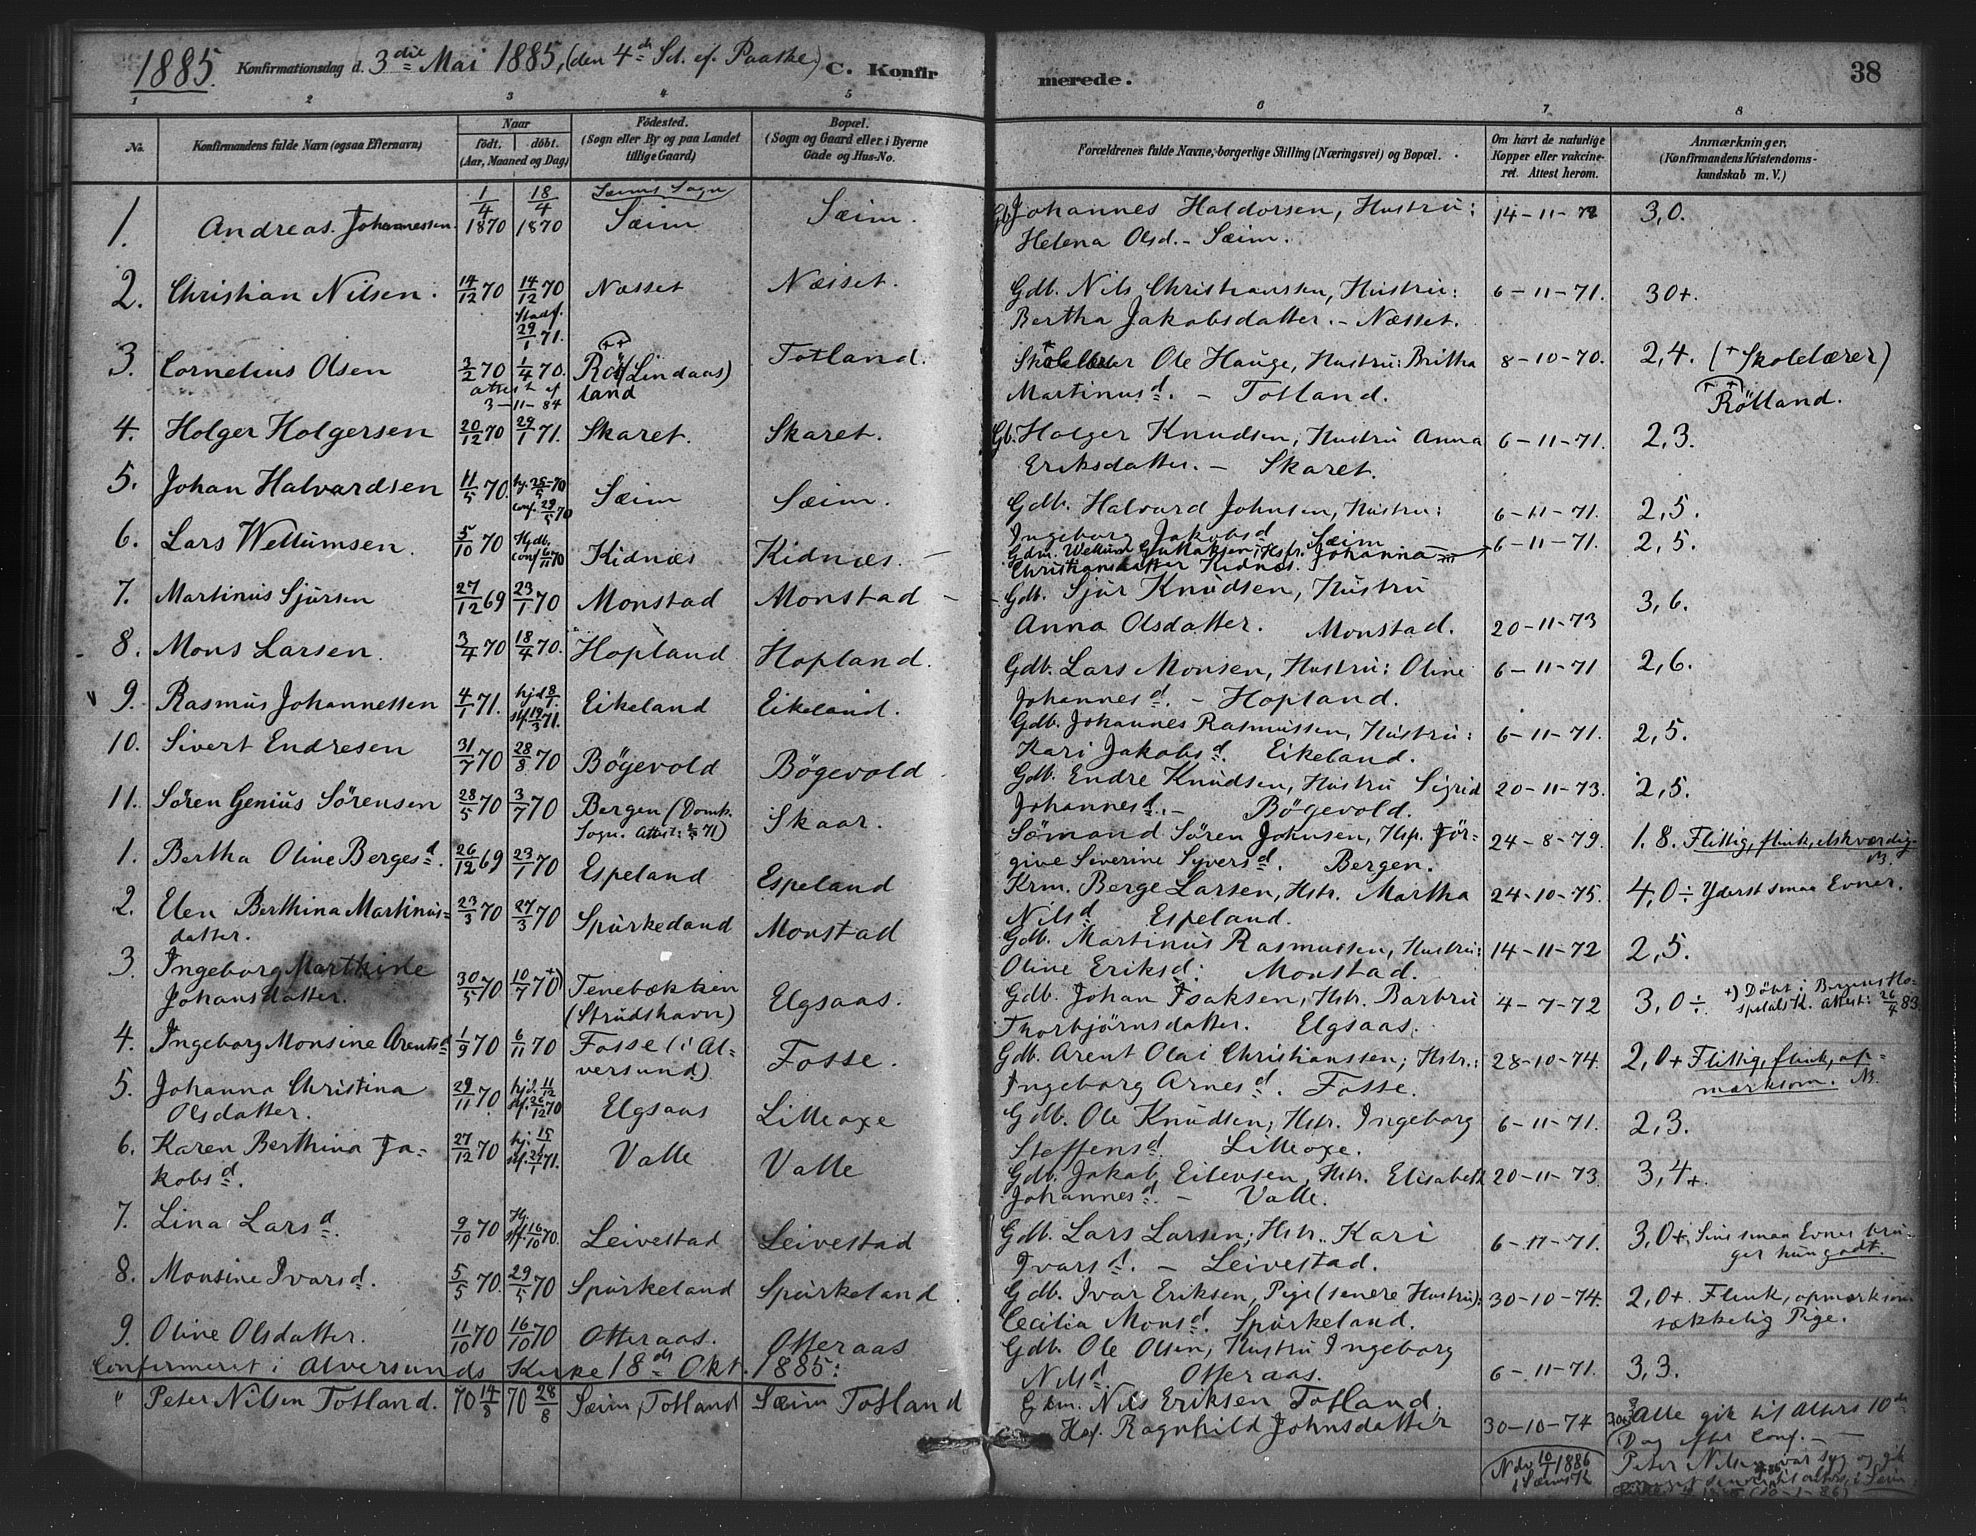 1885. Konfirmationsdag d. 3die Mai 1885, (den 4de Sd. ef. Paaske) C. Konfir merede. 38
1 2 3 4 5 6 7 8
No. Konfirmandens fulde Navn (ogsaa Efternavn) Naar födt. döbt. (Aar, Maaned og Dag) Födested. (Sogn eller By og paa Landet tillige Gaard) Bopæl. (Sogn og Gaard eller i Byerne Gade og Hus-No. Forældrenes fulde Navne, borgerlige Stilling (Næringsvei) og Bopæl. Om havt de naturlige Kopper eller vakcineret. Attest herom. Anmærkninger. (Konfirmandens Kristendomskundskab m. V.)
1. Andreas Johannessen. 1/4 1870 18/4 1870 Sæims Sogn Sæim Sæim. Gb. Johannes Haldorsen, Hustru: 14-11-72 3,0.
Helena Olsd. - Sæim.
2. Christian Nilsen. 14/12 70 14/12 70 Stadf. 29/1 71. Næsset Næsset. Gdb. Nils Christianssen, Hustru: 6-11-71. 30+.
Bertha Jakobsdatter. - Næsset.
3. Cornelius Olsen 3/2 70 1/4 70. attest af 3-11-84 (Lindaas) land Totland. Ole Hauge, Hustru: Britha 8-10-70. 2,4. (+Skolelærer)
Martinusd. - Totland. Rötland.
4. Holger Holgersen 20/12 70 29/1 71. Skaret. Skaret. Gb. Holger Knudsen, Hustru Anna 6-11-71. 2,3.
Eriksdatter. - Skaret.
5. Johan Halvardsen 11/5 70. hj. 25/5 70 conf. 29/5 70 Sæim Sæim. Gdb. Halvard Johnsen, Hustru: 6-11-71. 2,5.
Ingeborg Jakobsd. Sæim
6. Lars Wellumsen. 5/10 70 Hjdb. conf. 6/11 70 Kidnæs Kidnæs. Gdm. Wellum Hstr. Johanna 6-11-71. 2,5.
Christiansdatter Kidnæs.
7. Martinus Sjursen 27/12 69 23/1 70 Monstad Monstad Gdb. Sjur Knudsen, Hustru 3,6.
Anna Olsdatter. Monstad. 20-11-73
8. Mons Larsen. 3/4 70 18/4 70. Hopland Hopland. Gdb. Lars Monsen, Hustru: Oline 6-11-71 2,6.
Johannesd. - Hopland.
9. Rasmus Johannessen 4/1 71. hjd 8/1 stf. 19/3 71. Eikeland Eikeland. Gdb. Johannes Rasmussen, Hustru: 6-11-71. 2,5.
Kari Jakobsd. Eikeland.
10. Sivert Endresen 31/7 70 28/8 70 Bögevold Bögevold Gdb. Endre Knudsen, Hustru Sigrid 20-11-73. 2,5.
Johannesd. - Bögevold.
11. Sören Genius Sörensen 28/5 70 3/7 70 Bergen (Domk. Sogn. Skaar. Sömand Sören Johnsen, Hsp. Jör- 24-8-79. 1.8. Flittig, flink, elskværdig.
give Siverine Syversd. Bergen.
1. Bertha Oline Bergesd. 26/12 69 23/1 70 Espeland Espeland Krm. Berge Larsen, Hstr. Martha 24-10-75. 4,0÷ Yderst smaa Evner.
Nilsd. Espeland.
2. Elen Berthina Martinus-
datter. 23/3 70 27/3 70 Spurkeland Monstad Gdb. Martinus Rasmussen, Hustru: 14-11-72 2,5.
Oline Eriksd. Monstad.
3. Ingeborg Marthine
Johansdatter. 30/5 70 10/7 70+) Tenebækken (Strudshavn) Elgsaas. Gdb. Johan Isaksen, Hstr. Barbru 4-7-72 3,0÷ +) Döbt i Bergens Ho-
spitals K. Attest: 26/4 83.
Thorbjörnsdatter. Elgsaas.
4. Ingeborg Monsine Arentsd. 1/9 70 6/11 70 Fosse (i Al-
versund) Fosse. Gdb. Arent Olai Christianssen, Hstr.: 28-10-74. 2,0+ Flittig, flink, op-
mærksom. NB.
Ingeborg Arnesd. Fosse.
5. Johanna Christina
Olsdatter. 29/11 70. hjd. 11/12 stf. 26/12 70 Elgsaas Lilleoxe Gdb. Ole Knudsen, Hstr. Ingeborg 6-11-71. 2,3.
Steffensd. Lilleoxe.
6. Karen Berthina Ja-
kobsd. 27/12 70 hj. 15/1 71. Valle Valle Gdb. Jakob Eilevsen, Hstr. Elisabeth 20-11-73. 3,4+.
Johannesd. - Valle.
7. Lina Larsd. 9/10 70 Hj. stf. 16/10 70. Leivestad Leivestad Gdb. Lars Larsen, Hstr. Kari 6-11-71. 3,0+. Sine smaa Evner bru-
ger hun godt.
Ivarsd. - Leivestad.
8. Monsine Ivarsd. 5/5 70. 29/5 70 Spurkeland Spurkeland. Gdb. Ivar Eriksen, Pige (senere Hustru): 30-10-74. 2,0+. Flink, opmærksom
tækkelig Pige.
Cecilia Monsd. Spurkeland.
9. Oline Olsdatter. 11/10 70 16/10 70 Otteraas. Otteraas Gdb. Ole Olsen, Hustru Ingeborg 6-11-71. 3,3.
Nilsd. Otteraas.
Confirmeret i Alversunds Kirke 18de Okt. 1885:
" Peter Nilsen Totland. 70 14/8 70 28/8 Sæim, Totland Sæim Totland Gdm. Nils Eriksen Totland. 30-10-74 Alle gik til Alters 10de
Hst. Ragnhild Johnsdatter Dag efter Conf. -
Ndv. 10/1 1886 i Sæims K. Peter Nilsen var syg og gik